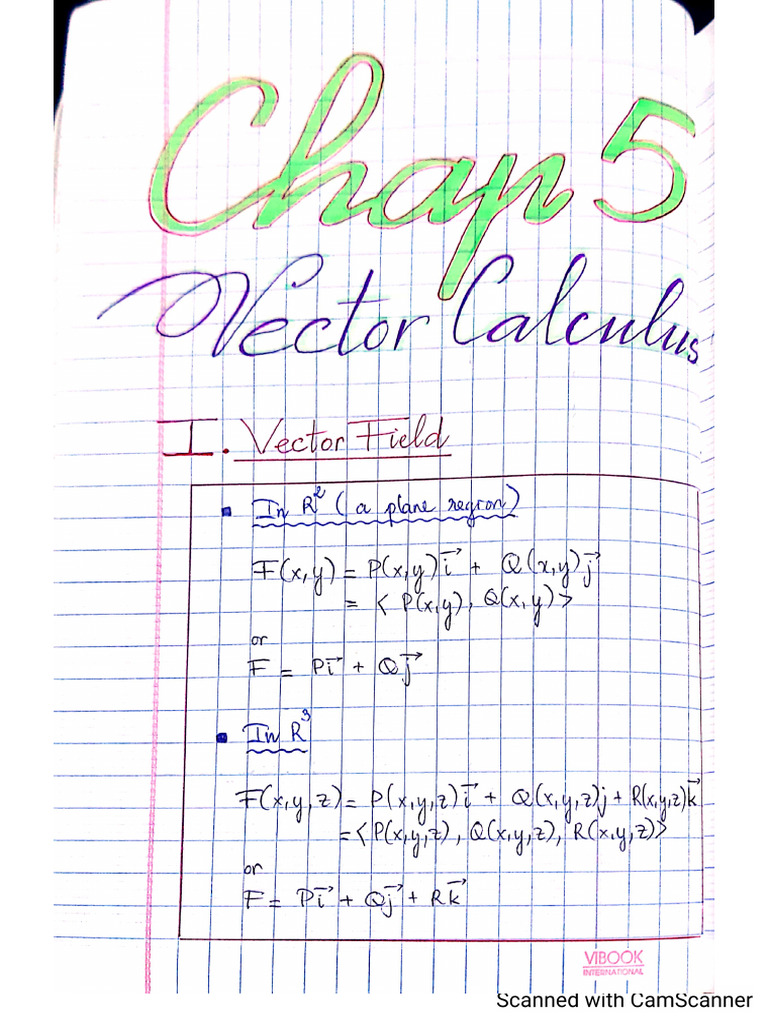 Chap 5
Vector Calculus
I. Vector Field
▪ In R² (a plane region)
F(x,y) = P(x,y)i⃗ + Q(x,y)j⃗
= < P(x,y), Q(x,y) >
or
F = Pi⃗ + Qj⃗
▪ In R³
F(x,y,z) = P(x,y,z)i⃗ + Q(x,y,z)j + R(x,y,z)k⃗
= < P(x,y,z), Q(x,y,z), R(x,y,z) >
or
F = Pi⃗ + Qj⃗ + Rk⃗
VIBOOK
INTERNATIONAL
Scanned with CamScanner